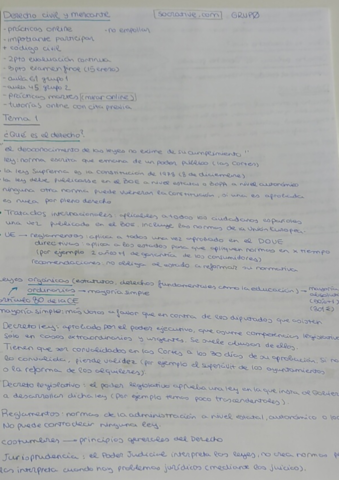 Derecho civil y mercantil socrative.com GRUPO
- prácticas online - no apuntes
- importante participar
+ código civil
- 2pto evaluación continua
- 8ptos examen final
- aula 61 grupo 1
- aula 45 grupo 2
- prácticas martes (menor online)
- tutorías online con cita previa
Tema 1
¿Qué es el derecho?
el desconocimiento de las leyes no exime de su cumplimiento
ley: norma escrita que emana de un poder público (las Cortes)
la ley Suprema es la Constitución de 1978 (6 de diciembre)
la ley debe publicarse en el BOE a nivel estatal o BOPA a nivel autonómico
ninguna otra norma puede vulnerar la Constitución, si una es aprobada
es nula por pleno derecho
Tratados internacionales: aplicables a todos los ciudadanos españoles
una vez publicado en el BOE, incluye las normas de la Unión Europea.
UE → reglamentos: aplica a todos una vez aprobado en el DOUE
directivas: aplica a los estados para que apliquen normas en x tiempo
(por ejemplo 3 años ley garantía de los consumidores)
Recomendaciones: no obliga al estado a reformar su normativa
Leyes orgánicas (estatutos, derechos fundamentales como la educación) → mayoría
ordinarias → mayoría simple
artículo 80 de la CE
mayoría simple: más votos a favor que en contra de los diputados que asisten
Decreto ley: aprobado por el poder ejecutivo, que asume competencias legislativas
solo en casos extraordinarios y urgentes. Se suele abusar de ellos.
Tienen que ser convalidados en las Cortes a los 30 días de su aprobación. Si no
la convalida, pierde validez (por ejemplo el superávit de los ayuntamientos
o la reforma de los alquileres)
Decreto legislativo: el poder legislativo aprueba una ley en la que insta al
a desarrollar dicha ley (por ejemplo temas poco trascendentales)
Reglamentos: normas de la administración a nivel estatal, autonómico o
No puede contradecir ninguna ley.
costumbres → principios generales del Derecho
Jurisprudencia: el Poder Judicial interpreta las leyes, no crea normas
las interpreta cuando hay problemas jurídicos (mediante los juicios).